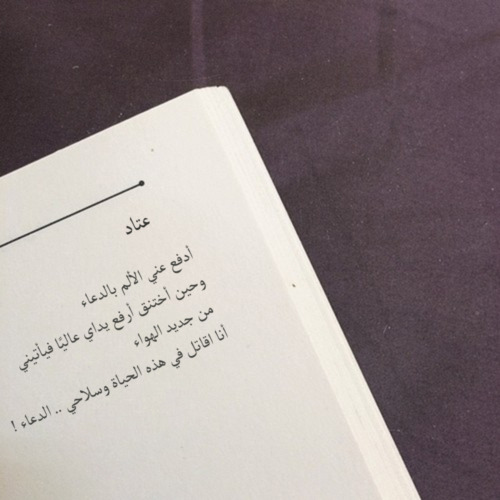 عتاد
أدفع عني الألم بالدعاء
وحين أختنق أرفع يداي عاليًا فيأتيني
من جديد الهواء
أنا اقاتل في هذه الحياة وسلاحي .. الدعاء !